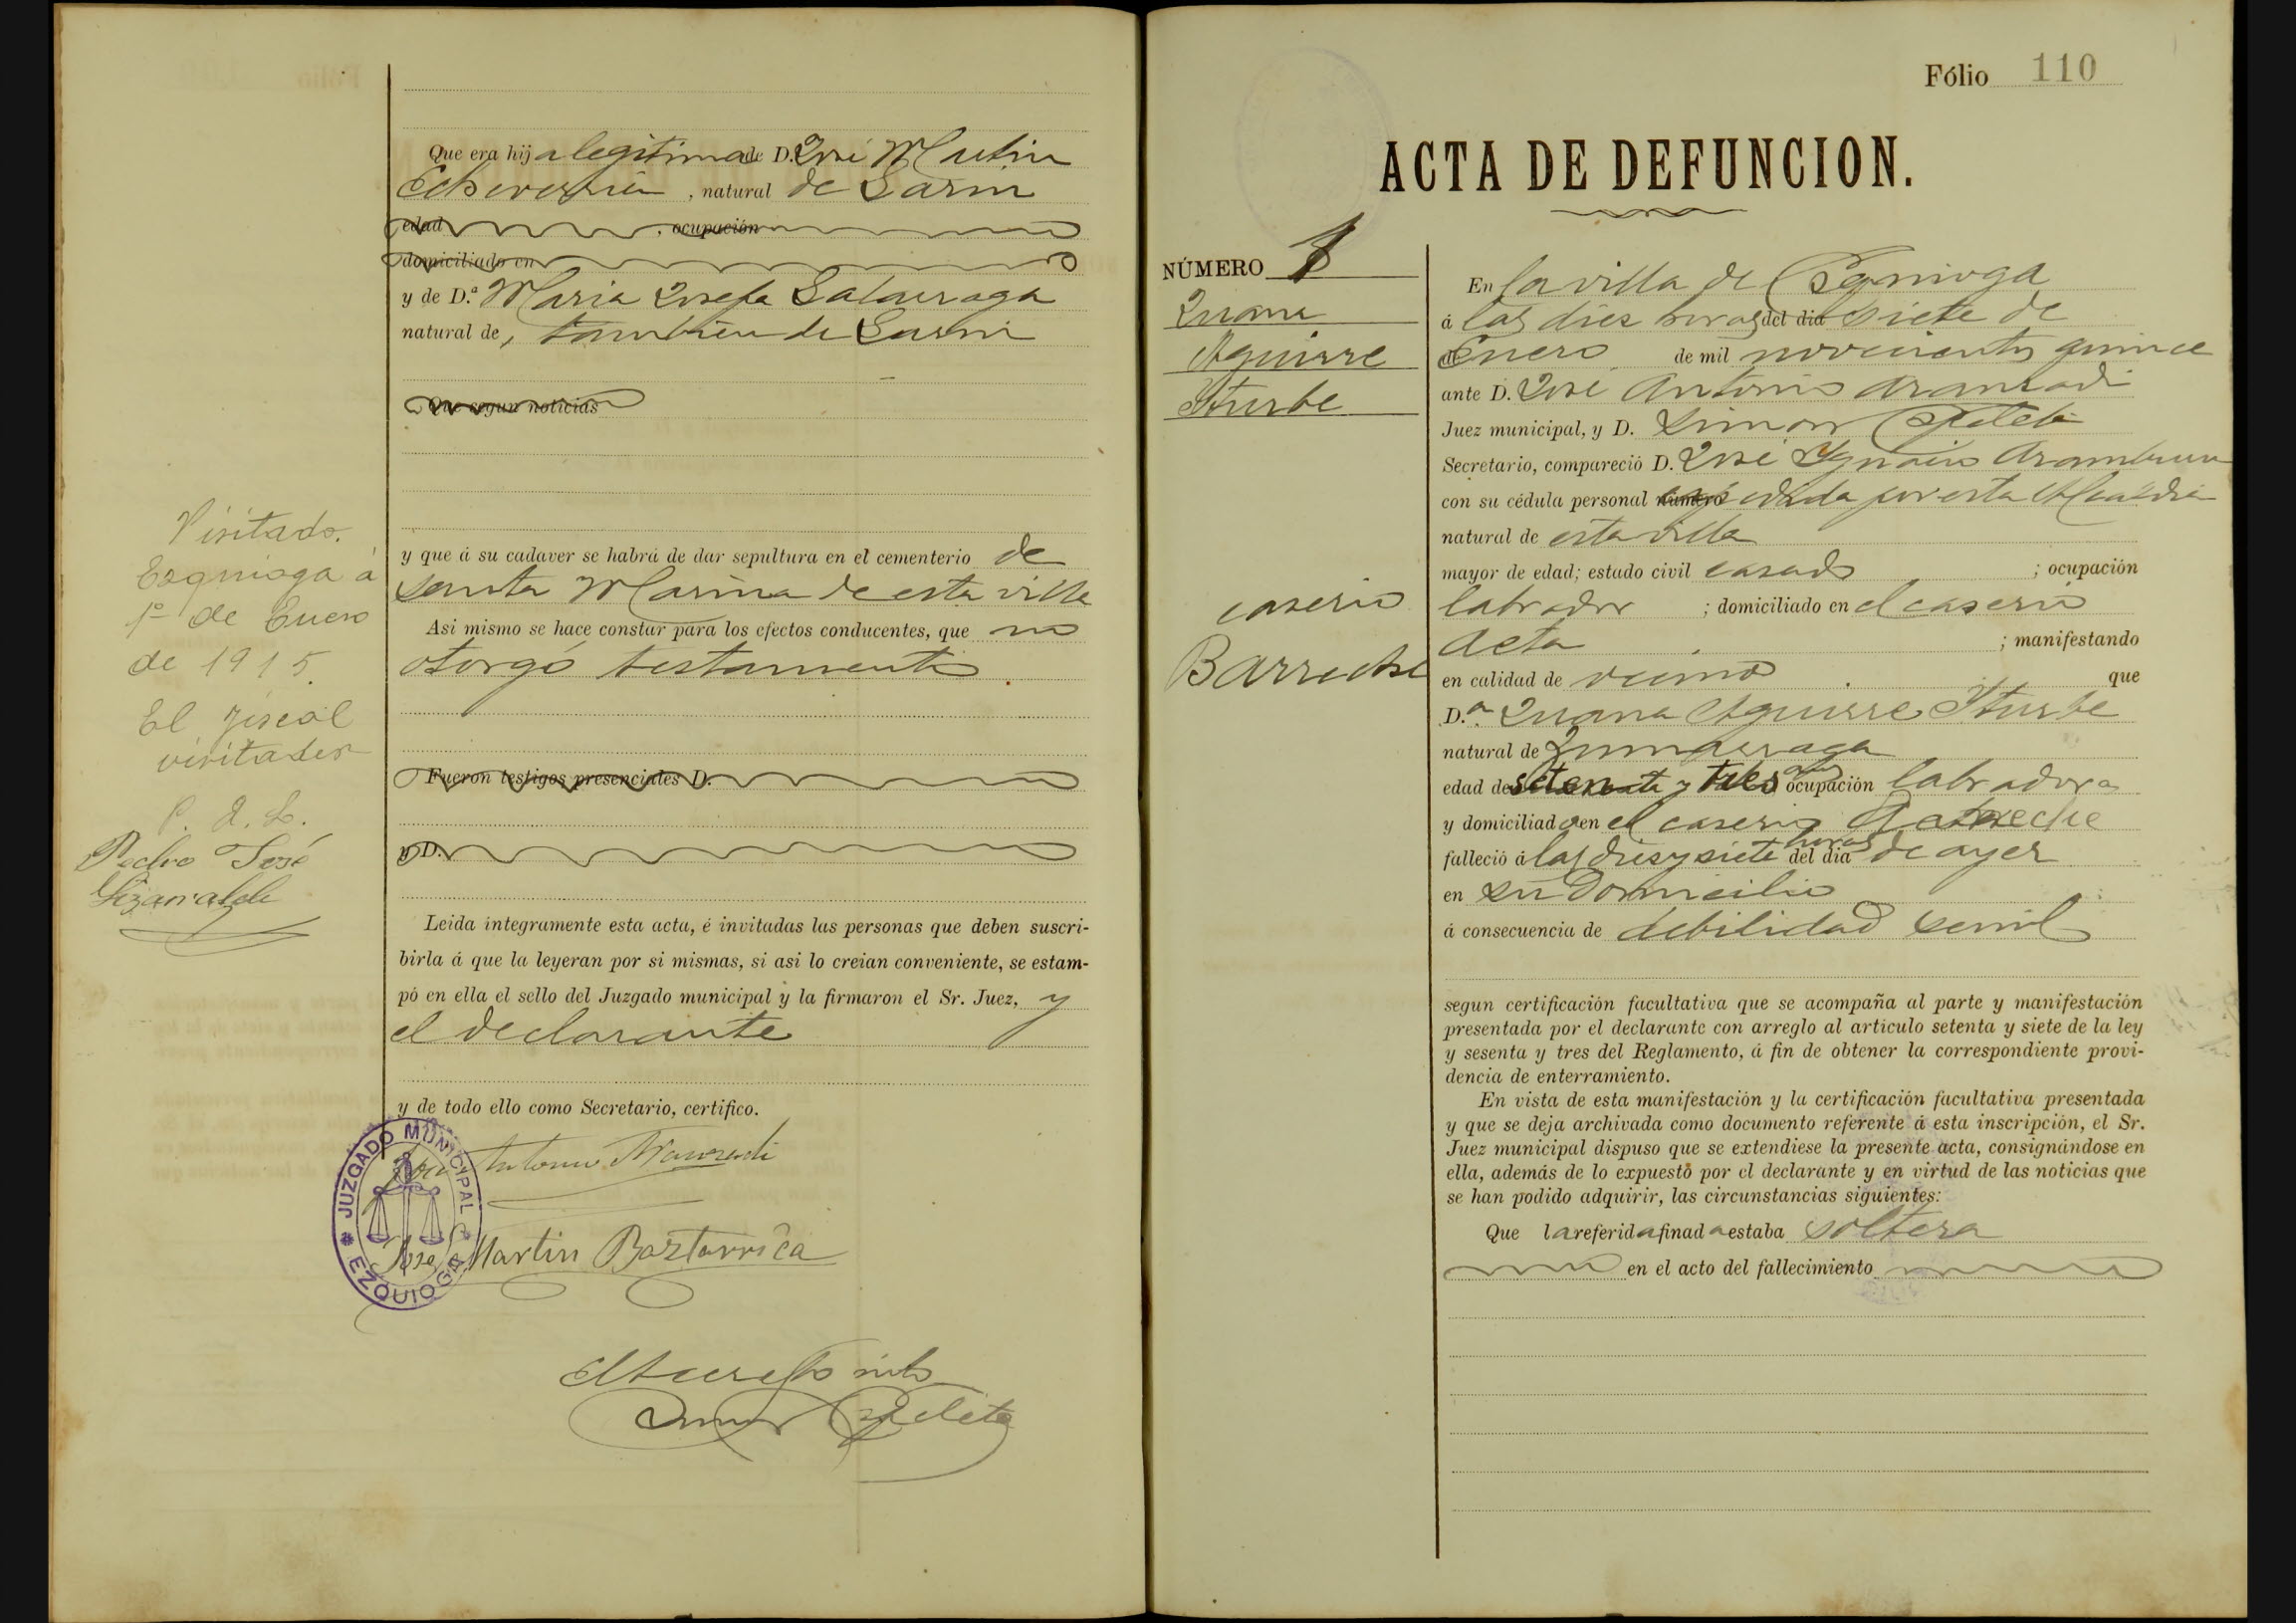 Que era hija legitima de D. José Martin
Echeverria, natural de Lazcin
edad, ocupación
domiciliado en
y de D.ª Maria Josefa Galarraga
natural de, tambien de
Que segun noticias
y que á su cadaver se habrá de dar sepultura en el cementerio de
santa Marina de esta villa
Asi mismo se hace constar para los efectos conducentes, que no
otorgó testamento
Fueron testigos presenciales D.
y D.
Leida integramente esta acta, é invitadas las personas que deben suscri-
birla á que la leyeran por si mismas, si asi lo creian conveniente, se estam-
pó en ella el sello del Juzgado municipal y la firmaron el Sr. Juez, y
el declarante
y de todo ello como Secretario, certifico.
José Antonio Aranzadi
José Martin Baztarrica
Simon
JUZGADO MUNICIPAL
EZQUIOGA
Visitado.
Ezquioga á
1º de Enero
de 1915.
El Fiscal
visitador
P. A. L.
Pedro José
Lizarralde
Fólio 110
ACTA DE DEFUNCION.
NÚMERO
Juana
Aguirre
Iturbe
caserio
Barreche
En la villa de Ezquioga
á las diez horas del dia siete de
Enero de mil novecientos quince
ante D. José Antonio Aranzadi
Juez municipal, y D. Simon
Secretario, compareció D. José Ygnacio Aramburu
con su cédula personal número expedida por esta Alcaldia
natural de esta villa
mayor de edad; estado civil casado; ocupación
labrador; domiciliado en el caserio
Aeta; manifestando
en calidad de vecino que
D.ª Juana Aguirre Iturbe
natural de Zumarraga
edad de setenta y tres años ocupación labradora
y domiciliada en el caserio Barreche
falleció á las dies y siete horas del dia de ayer
en su domicilio
á consecuencia de debilidad senil
segun certificación facultativa que se acompaña al parte y manifestación
presentada por el declarante con arreglo al articulo setenta y siete de la ley
y sesenta y tres del Reglamento, á fin de obtener la correspondiente provi-
dencia de enterramiento.
En vista de esta manifestación y la certificación facultativa presentada
y que se deja archivada como documento referente á esta inscripción, el Sr.
Juez municipal dispuso que se extendiese la presente acta, consignándose en
ella, además de lo expuesto por el declarante y en virtud de las noticias que
se han podido adquirir, las circunstancias siguientes:
Que la referida finada estaba soltera
en el acto del fallecimiento